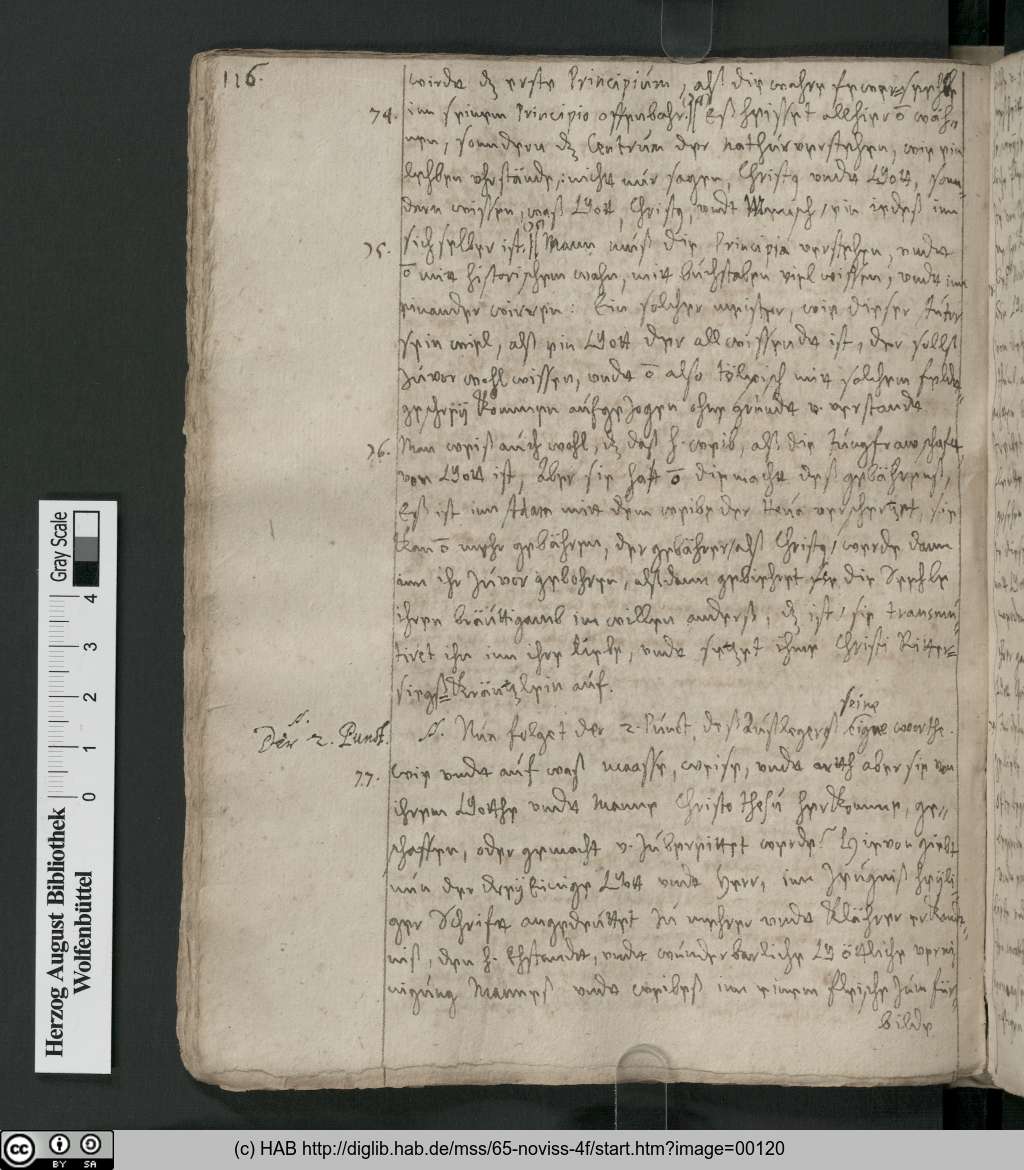 116.
wirdt dz erste Principium, alß die wahre fewer=seehle
74. im seinem Principio offenbahr. Es heisset allhier ō wäh=
nen, sonndern dz Centrum der nathur verstehen, wie ein
lehben uhrstände, nicht nur sagen, Christus undt Gott, son=
dern wissen, waß Gott, Christus, undt Mensch, ein iedeß inn
75. sich selber ist. Mann muß die Principia verstehen, undt
ō mit historischem wahn, mit buchstaben viel wissen, undt inn
einander wirren: Ein solcher meister, wie dieser Autor
sein will, alß ein Gott der allwissendt ist, der sollß
zuvor wohl wissen, undt ō also tölpisch mit solchem feldt=
geschreÿ kommen aufgezogen ohne grundt u. verstandt
76. Man weiß auch wohl, dz daß h. weib, alß die Jungfrawschafft
von Gott ist, Aber sie hatt ō die macht deß gebährenß,
Eß ist inn Adam mit dem weibe der Heua verscherzet, sie
kan ō mehr gebähren, der gebährer, alß Christus, werde dann
inn ihr zuvor gebohren, alßdann gebiehret die Seehle
ihren bräuttigamb im willen anderß, dz ist, sie transmu=
tiret ihn inn ihre liebe, undt setzet ihme Christi Ritter=
siegß=kräntzlein auf.
Der 2. Punct. Nun folget der 2. Punct, deß Außlegerß seine eigne worthe.
77. Wie undt auf waß maasse, weise, undt arth aber sie von
ihrem Gotthe undt Manne Christo Jhesu herkomme, ge=
schaffen, oder gemacht u. zubereittet werde? Hievon giebt
nun der dreÿEinige Gott undt Herr, inn zeugniß heÿli=
ger Schrifft angedeuttet zu mehrer undt klährer erkendt=
niß, den h. Ehstandt, undt wunderbarliche Göttliche verei=
nigung Manneß undt weibeß inn einem fleische zum für=
bilde
Gray Scale
4
3
2
1
0
Herzog August Bibliothek
Wolfenbüttel
(c) HAB http://diglib.hab.de/mss/65-noviss-4f/start.htm?image=00120